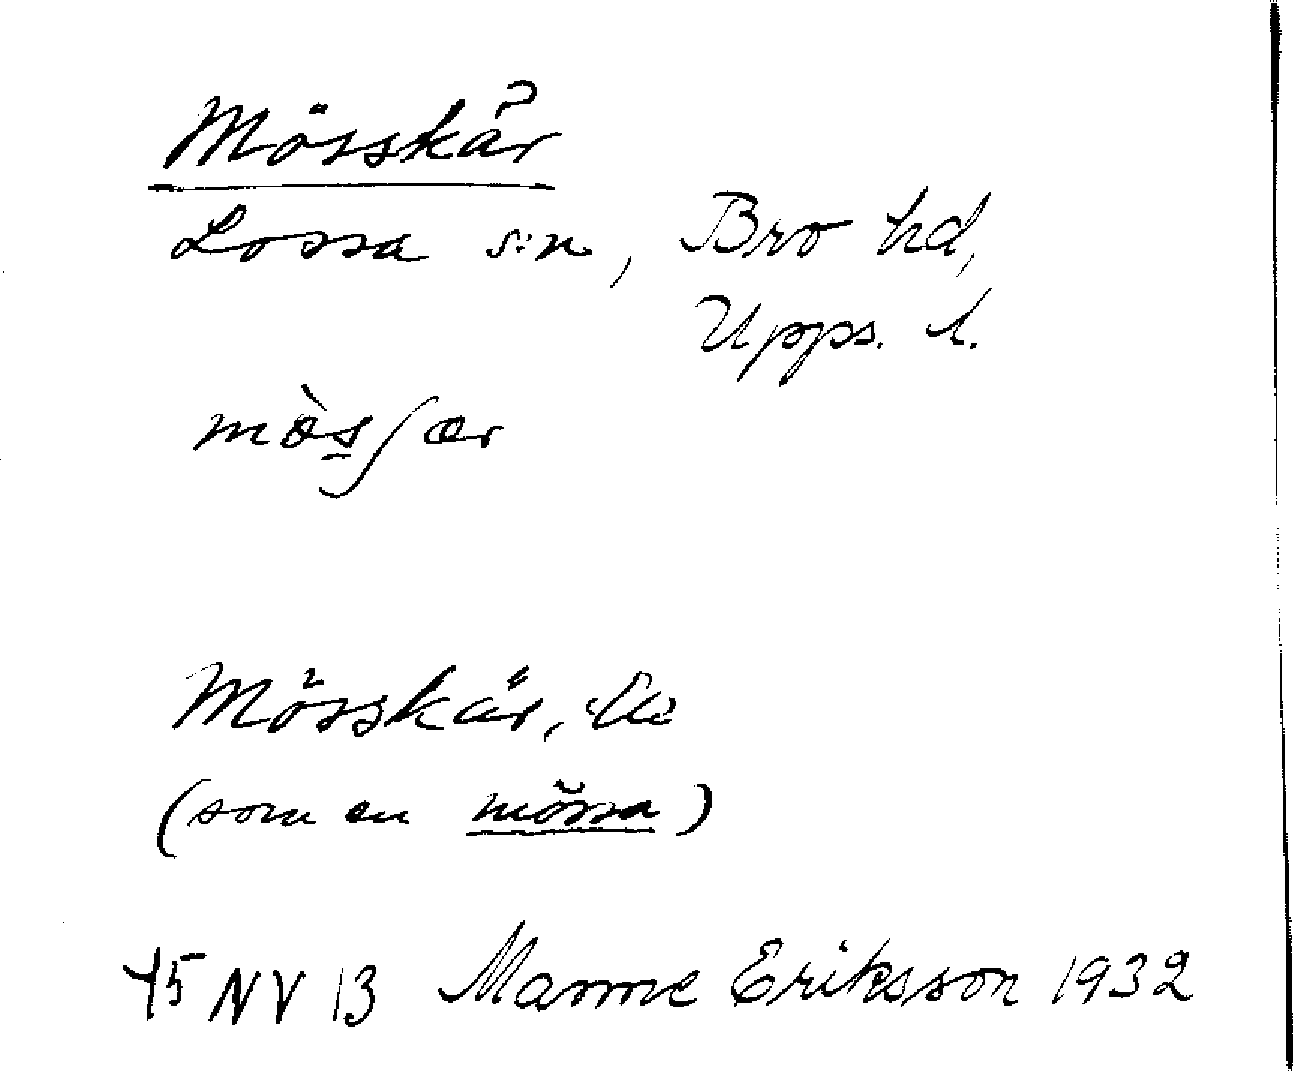 Mösskär
Lossa s:n, Bro hd,
Upps. l.
mø̀s̲ʃær
Mösskär,
(som en mössa)
45 NV 13 Manne Eriksson 1932